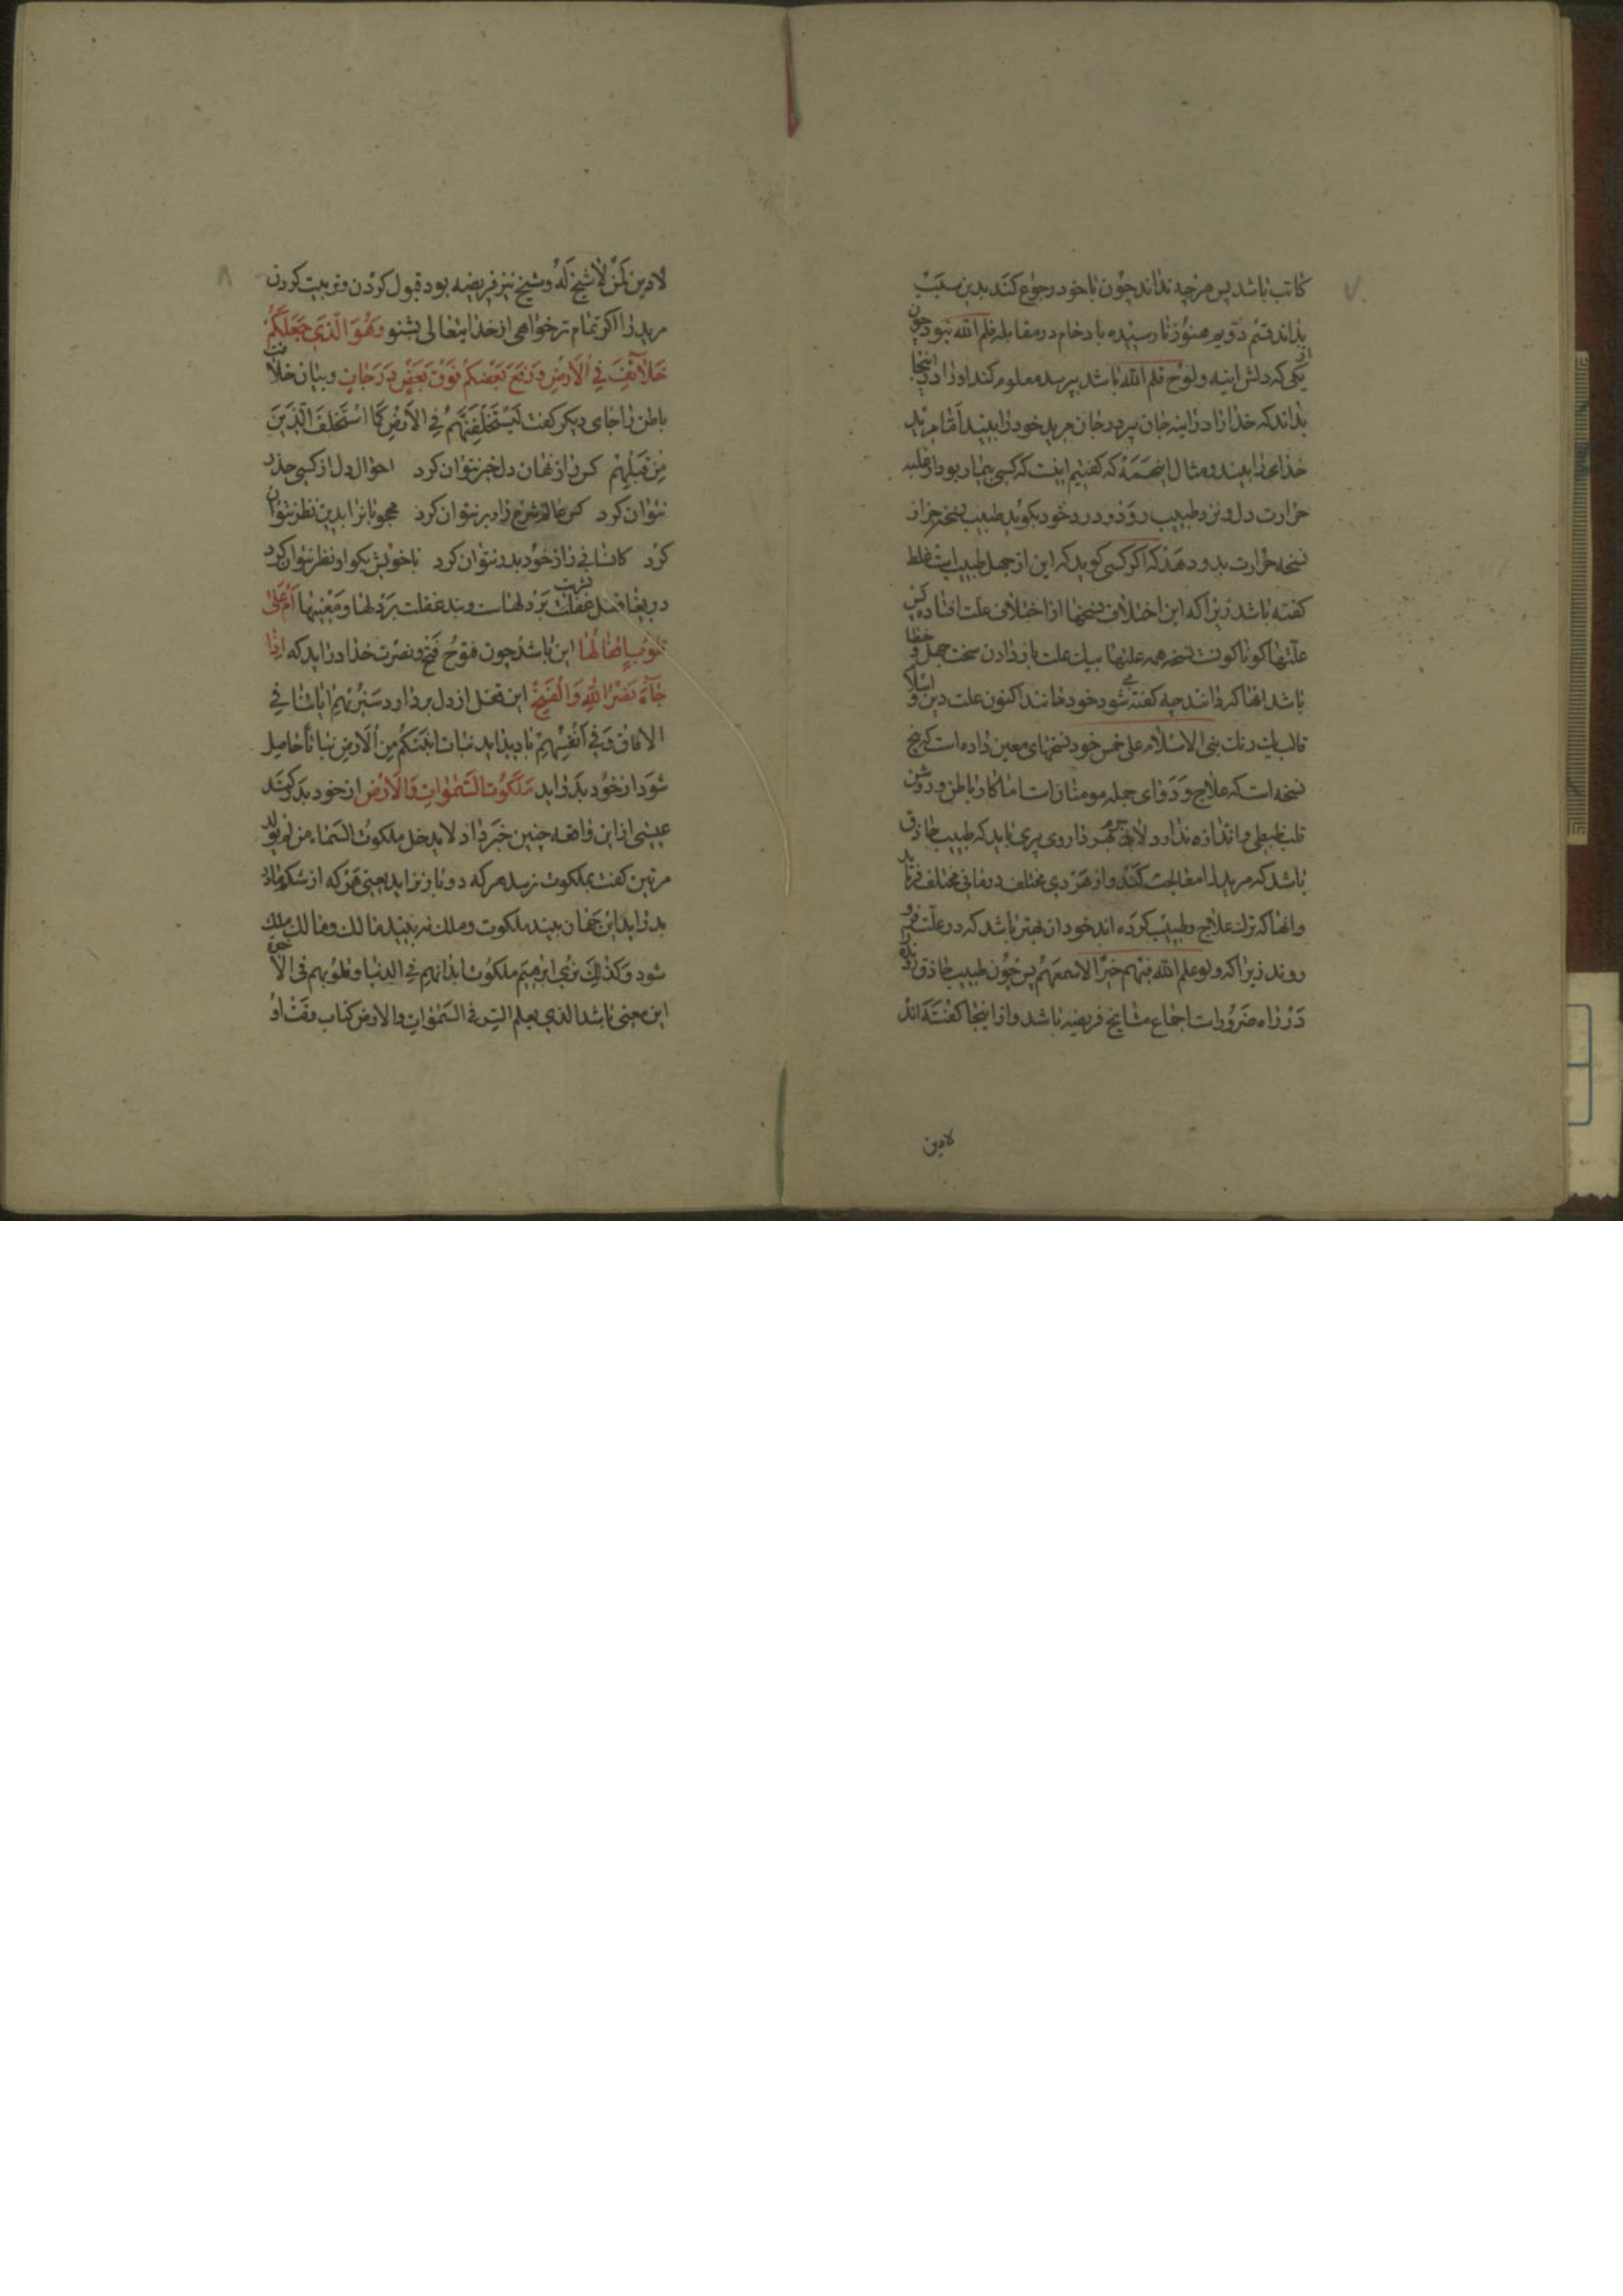 ۷
کاتب باشد پس هرچه نداند چون با خود رجوع کند بدین سبب
بداند قسم دویم هنوز نارسیده باد خام در مقابله قلم الله نبود چون
یکی که دلش اینه ولوح قلم الله باشد بپرسد معلوم کند او را در اینجا
بداند که خدا را در اینه جان پیر در جان مرید خود را بیند اما مرید
خدای را بیند و مثال اینهمه که گفتیم اینست که کسی بیمار بود از غلبه
حرارت دل و نزد طبیب رود و درد خود بکوید طبیب نسخه جز از
نسخه حرارت بدو دهد که اکر کسی کوید که این از جهل طبیب است غلط
کفته باشد زیرا که این اختلاف نسخها از اختلاف علت افتاده پس
علتها کوناکونست نسخه همه علتها بیک علت باز دادن سخت جهل و خطا
باشد انها که دانند چه کفته می شود خود دانند اکنون علت دین و اسلا
قالب یک رنک بنی الاسلام علی خمس خود نسخهای معین داده است که پنج
نسخه است که علاج و دوای جمله مومنان است اما کار باطن و روش
قلب ضبطی و اندازه ندارد لابد بهر داروی پیری باید که طبیب حاذق
باشد که مرید را معالجت کند و از هر دردی مختلف درمانی مختلف فرماید
وانها که ترک علاج و طبیب کرده اند خود ان بهتر باشد که در علت فرو
روند زیرا که ولو علم الله فیهم خیرا لاسمعهم پس چون طبیب حاذق
در راه ضرورات اجماع مشایخ فریضه باشد و از اینجا کفته اند
لادین
۸
لادین لمن لا شیخ له و شیخ نیز فریضه بود قبول کردن و تربیت کردن
مرید را اکر تمام تر خواهی از خدایتعالی بشنو وهو الذی جعلکم
خلائف فی الارض و رفع بعضکم فوق بعض درجات و بیان خلافت
باطن را جای دیکر کفت لیستخلفنهم فی الارض کما استخلف الذین
من قبلهم کس را از نهان دل خبر نتوان کرد احوال دل از کسی حذر
نتوان کرد زبر نتوان کرد محجوبانرا بدین نظر نتوان
کرد کانسانی را از خود بدر نتوان کرد با خویش بکو او نظر نتوان کرد
دریغا قفل غفلت بشریت بر دلهاست و بند غفلت بر دلها و معنیها ام علی
قلوب اقفالها این باشد چون فتوح فتح و نصرت خدا دراید که اذا
جاء نصر الله والفتح این قفل از دل بردارد سنریهم ایاتنا فی
الافاق و فی انفسهم بادید اید نبات انبتکم من الارض نباتا حاصل
شود از خود بدر اید ملکوت السموات والارض از خود بدر
عیسی از این واقعه چنین خبر داد لایدخل ملکوت السماء من لم یولد
مرتین کفت بملکوت نرسد هر که دوبار نزاید یعنی هر که از شکم مادر
بدر اید این جهان بیند ملکوت و ملک نه بیند مالک و مالک ملک
شود وکذلک نری ابرهیم ملکوت ابدانهم فی الدنیا و قلوبهم فی الاخرة
این معنی باشد الذی یعلم السر فی السموات والارض کتاب وقت او